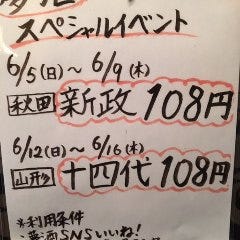 スペシャルイベント
6/5(日)～6/9(木)
秋田 新政 108円
6/12(日)～6/16(木)
山形 十四代 108円
※利用条件
SNSいいね!